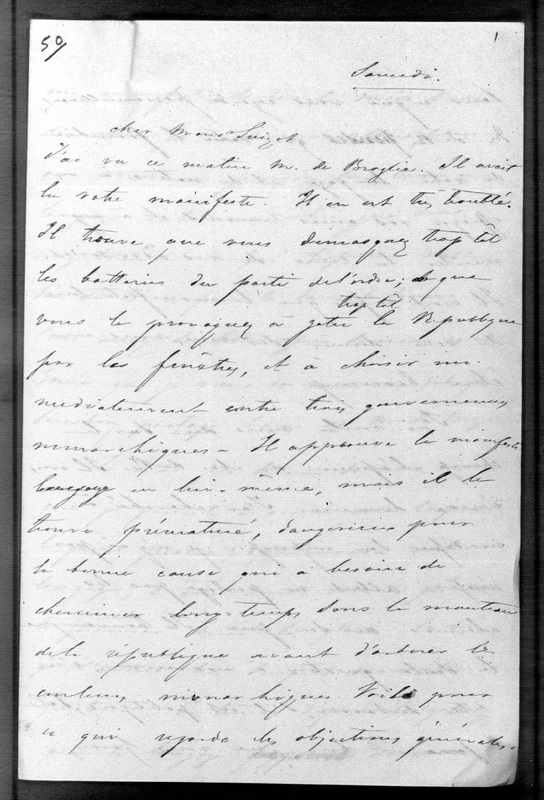 59
1
Samedi.
cher Monsr Guizot
J'ai vu ce matin M. de Broglie. Il avait
lu votre manifeste. Il en est très troublé.
Il trouve que vous demasquez trop tôt
les batteries du parti de l'ordre; que
trop tôt
vous le provoquez à jeter la République
par les fenêtres, et à choisir im-
mediatement entre trois gouvernemens
monarchiques – Il approuve le manifeste
en lui-même, mais il le
trouve prématuré, dangereux pour
la bonne cause qui a besoin de
cheminer longtemps sous le manteau
de la république avant d'arborer les
couleurs monarchiques. Voilà pour
ce qui regarde les objections générales.